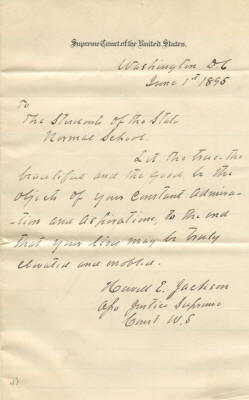 Supreme Court of the United States.
Washington D.C
June 1st 1895
To
The Students of the State
Normal School.
Let the true, the
beautiful and the good, be the
objects of your constant admira-
-tion and aspirations, to the end
that your lives may be truly
elevated and enobled.
Howell E. Jackson
Asso Justice Supreme
Court U.S